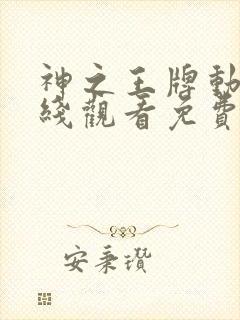 神之王牌動
綫觀看免費
安秉瓚